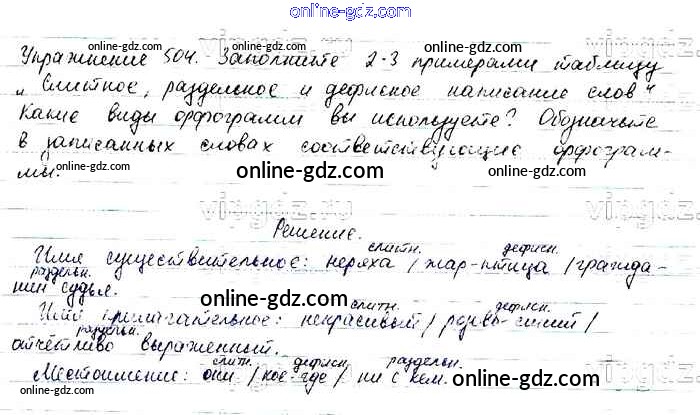 online-gdz.com
Упражнение 504. Заполните 2-3 примерами таблицу
online-gdz.com online-gdz.com
„Слитное, раздельное и дефисное написание слов"
Какие виды орфограмм вы используете? Обозначьте
в записанных словах соответствующие орфограм-
мы.
online-gdz.com
vipgdz.ru
Решение.
слитн. дефисн.
Имя существительное: неряха / жар-птица / гражда-
раздельн.
нин судья.
online-gdz.com
слитн. дефисн.
Имя прилагательное: некрасивый / розово-синий /
раздельн.
отчётливо выраженный.
online-gdz.com
слитн. дефисн. раздельн.
Местоимение: они / кое-где / ни с кем.
online-gdz.com online-gdz.com